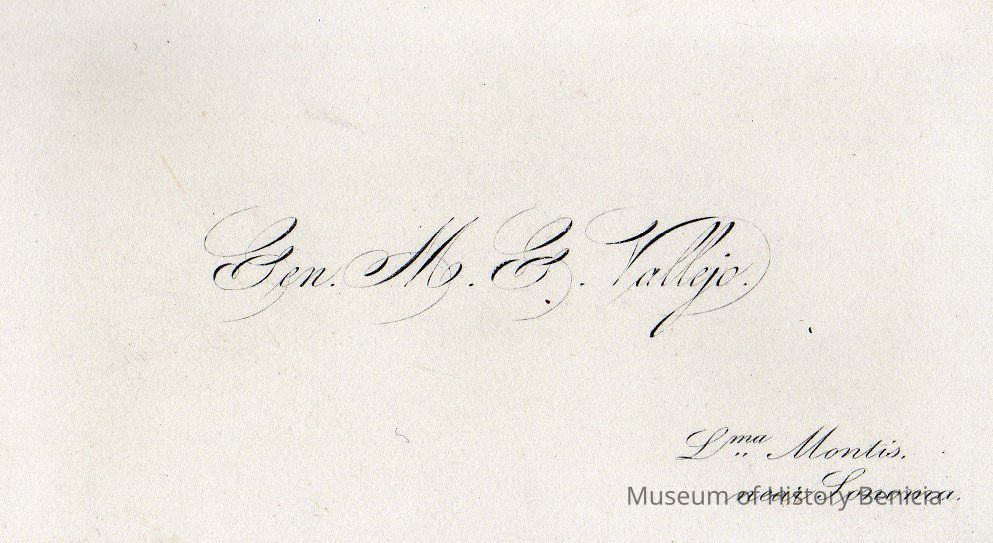 Gen. M. G. Vallejo.
L.ma Montis.
near Sonoma.
Museum of History Benicia